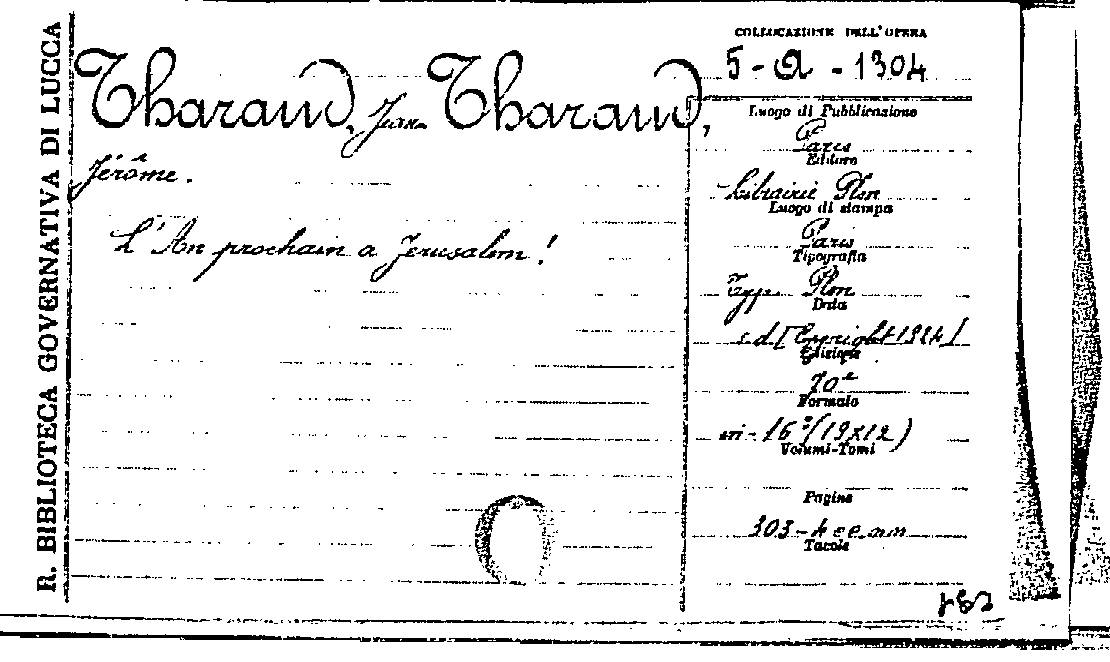 R. BIBLIOTECA GOVERNATIVA DI LUCCA
COLLOCAZIONE DELL'OPERA
5-a-1304
Tharaud, Jean Tharaud,
Jérôme.
L'An prochain a Jerusalem!
Luogo di Pubblicazione
Paris
Editore
Librairie Plon
Luogo di stampa
Paris
Tipografia
Typ. Plon
Data
s.d [Copyright 1924]
Edizione
70e
Formato
16° (19x12)
Volumi-Tomi
Pagine
303-4 cc.nn
Tavole